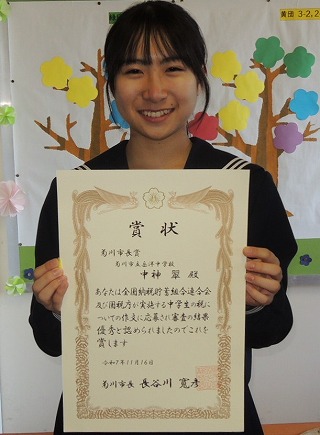 黄団 3-2,2
賞状
菊川市長賞
菊川市立岳洋中学校
中神 翠 殿
あなたは全国納税貯蓄組合連合会
及び国税庁が実施する中学生の税に
ついての作文に応募され審査の結果
優秀と認められましたのでこれを
賞します
令和7年11月16日
菊川市長 長谷川 寛彦